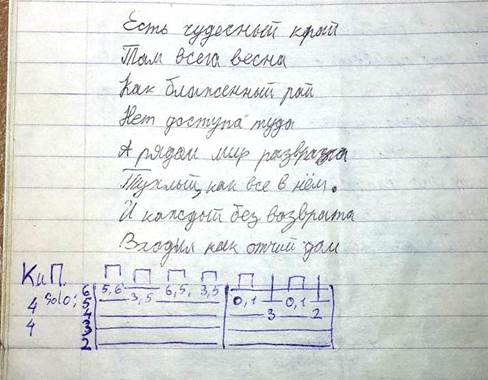 Есть чудесный край
Там всега весна
Как блаженный рай
Нет доступа туда
А рядом мир разврата
Тухлый, как все в нём.
И каждый без возврата
Входил как отчий дом
КиП.
Solo:
4
4
6 5,6 3,5 6,5, 3,5 0,1 3 0,1 2
5
4
3
2